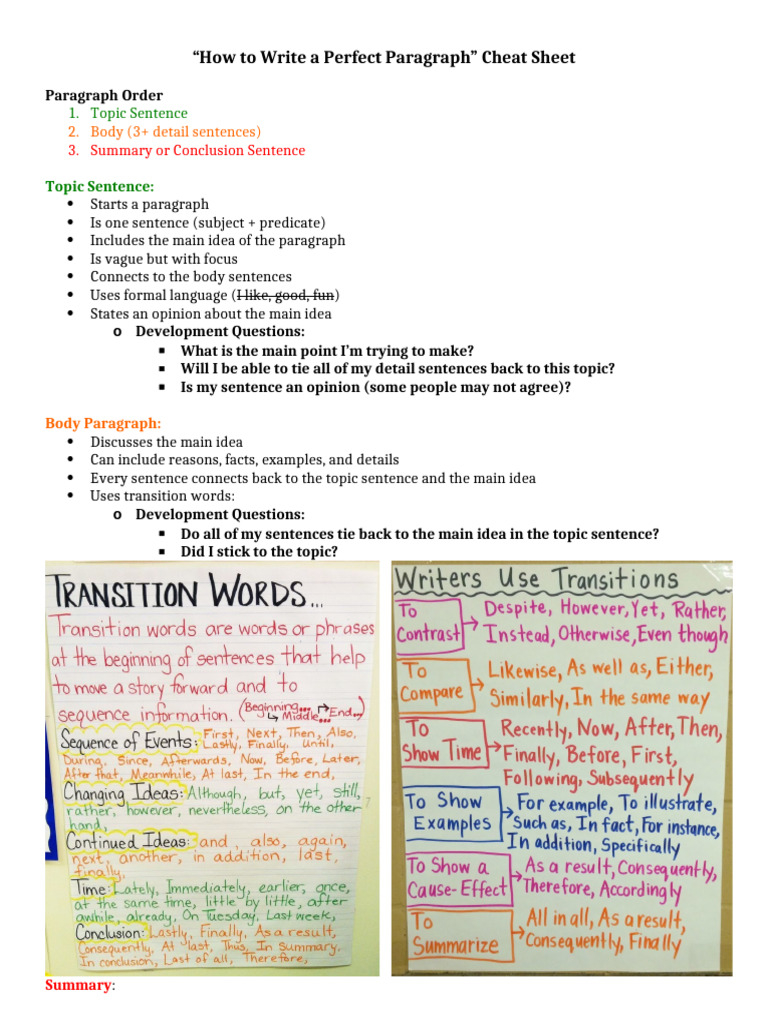 “How to Write a Perfect Paragraph” Cheat Sheet
Paragraph Order
1. Topic Sentence
2. Body (3+ detail sentences)
3. Summary or Conclusion Sentence
Topic Sentence:
• Starts a paragraph
• Is one sentence (subject + predicate)
• Includes the main idea of the paragraph
• Is vague but with focus
• Connects to the body sentences
• Uses formal language (I like, good, fun)
• States an opinion about the main idea
o Development Questions:
▪ What is the main point I’m trying to make?
▪ Will I be able to tie all of my detail sentences back to this topic?
▪ Is my sentence an opinion (some people may not agree)?
Body Paragraph:
• Discusses the main idea
• Can include reasons, facts, examples, and details
• Every sentence connects back to the topic sentence and the main idea
• Uses transition words:
o Development Questions:
▪ Do all of my sentences tie back to the main idea in the topic sentence?
▪ Did I stick to the topic?
TRANSITION WORDS...
Transition words are words or phrases
at the beginning of sentences that help
to move a story forward and to
sequence information. (Beginning... Middle... End..)
Sequence of Events: First, Next, Then, Also,
Lastly, Finally, Until,
During, Since, Afterwards, Now, Before, Later,
After that, Meanwhile, At last, In the end,
Changing Ideas: Although, but, yet, still,
rather, however, nevertheless, on the other
hand,
Continued Ideas: and, also, again,
next, another, in addition, last,
finally,
Time: Lately, Immediately, earlier, once,
at the same time, little by little, after
awhile, already, On Tuesday, Last week,
Conclusion: Lastly, Finally, As a result,
Consequently, At last, Thus, In summary,
In conclusion, Last of all, Therefore,
Writers Use Transitions
To Contrast
Despite, However, Yet, Rather,
Instead, Otherwise, Even though
To Compare
Likewise, As well as, Either,
Similarly, In the same way
To Show Time
Recently, Now, After, Then,
Finally, Before, First,
Following, Subsequently
To Show Examples
For example, To illustrate,
Such as, In fact, For instance,
In addition, Specifically
To Show a Cause-Effect
As a result, Consequently,
Therefore, Accordingly
To Summarize
All in all, As a result,
Consequently, Finally
Summary: